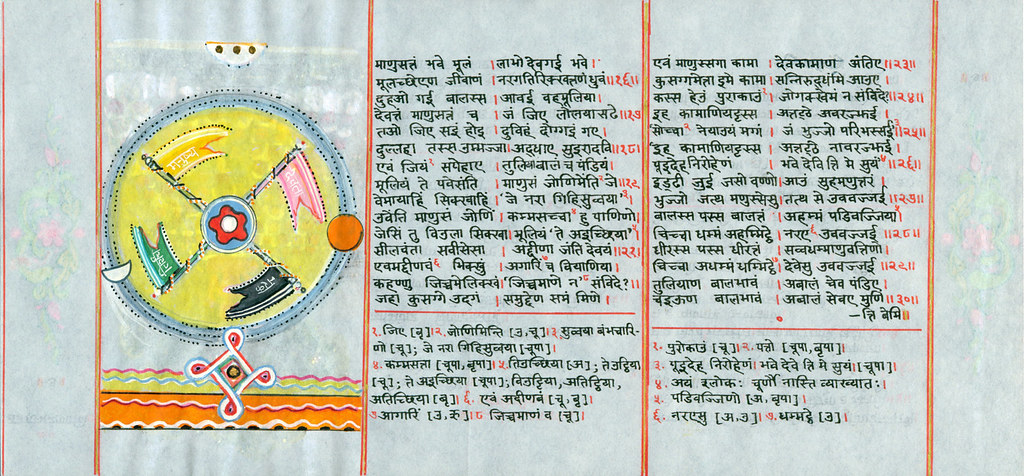 मनुष्य
देवता
तिर्यंच
नरक
माणुसत्तं भवे मूलं । लाभो देवगई भवे ।
मूलच्छेएण जीवाणं नरगतिरिक्खत्तणं धुवं॥१६॥
दुहओ गई बालस्स । आवई वहमूलिया।
देवत्तं माणुसत्तं च जं जिए लोलयासढे॥१७
तओ जिए सइं होइ दुविहं दोग्गइं गए।
दुल्लहा तस्स उम्मज्जा।अद्धाए सुइरादवि॥१८।
एवं जियं१ सपेहाए तुलिया बालं च पंडियं।
मूलियं ते पवेसंति माणुसं जोणिमेंति२ जे॥१९
वेमायाहिं सिक्खाहिं ।जे नरा गिहिसुव्वया३।
उवेंति माणुसं जोणिं कम्मसच्चा४ हु पाणिणो॥
जेसिं तु विउला सिक्खा।मूलियं 'ते अइच्छिया'५
सीलवंता सवीसेसा । अद्दीणा जंति देवयं॥२१।
एवमद्दीणवं६ भिक्खुं । अगारिं७ च वियाणिया।
कहण्णु जिच्चमेलिक्खं।'जिच्चमाणे न'८ संविदे?॥
जहा कुसग्गे उदगं । समुद्देण समं मिणे ।
१. जिए [चू]। २. जोणिमिन्ति [उ,चू]। ३. सुव्वया बंभचारि-
णो [चू]; जे नरा गिहिसुव्वया [चूपा]।
४. कम्मसत्ता [चूपा, बृपा]। ५. तिउच्छिया [अ] ; तेउट्टिया
[चू] ; ते अइच्छिया [चूपा];विउट्टिया, अतिट्टिया,
अतिच्छिया [बृ] ६. एवं अदीणवं [चू, बृ]
७ आगारिं [उ, ऋ] ।८ जिच्चमाणं व [चू]।
एवं माणुस्सगा कामा । देवकामाण अंतिए॥२३॥
कुसग्गमेत्ता इमे कामा। सन्निरुद्धंमि आउए।
कस्स हेउं पुराकाउं१ जोगक्खेमं न संविदे?॥२४॥
इह कामाणियट्टस्स । अत्तट्ठे अवरज्झई।
'सोच्चा२ नेयाउयं मग्गं । जं भुज्जो परिभस्सई'३॥२५॥
'इह कामाणियट्टस्स । अत्तट्ठे नावरज्झई।
पूइदेहनिरोहेणं भवे देवे त्ति मे सुयं'॥२६॥
इड्ढी जुई जसो वण्णो।आउं सुहमणुत्तरं।
भुज्जो जत्थ मणुस्सेसु।तत्थ से उववज्जई॥२७॥
बालस्स पस्स बालत्तं। अहम्मं पडिवज्जिया५।
चिच्चा धम्मं अहम्मिट्ठे नरए६ उववज्जई ॥२८॥
धीरस्स पस्स धीरत्तं । सव्वधम्माणुवत्तिणो।
चिच्चा अधम्मं धम्मिट्ठे७। देवेसु उववज्जई॥२९॥
तुलियाण बालभावं । अबालं चेव पंडिए।
चइऊण बालभावं । अबालं सेवए मुणि॥३०॥
—त्ति बेमि॥
१. पुरोकाउं [चू]।२. पत्तो [चूपा,बृपा]।
३. पूइदेह निरोहेणं। भवे देवे त्ति मे सुयं [चूपा]।
४. अयं श्लोकः चूर्णौ नास्ति व्याख्यातः।
५. पडिवज्जिणो [अ, बृपा]।
६. नरएसु [अ,उ]।७. धम्मट्ठे [उ]।